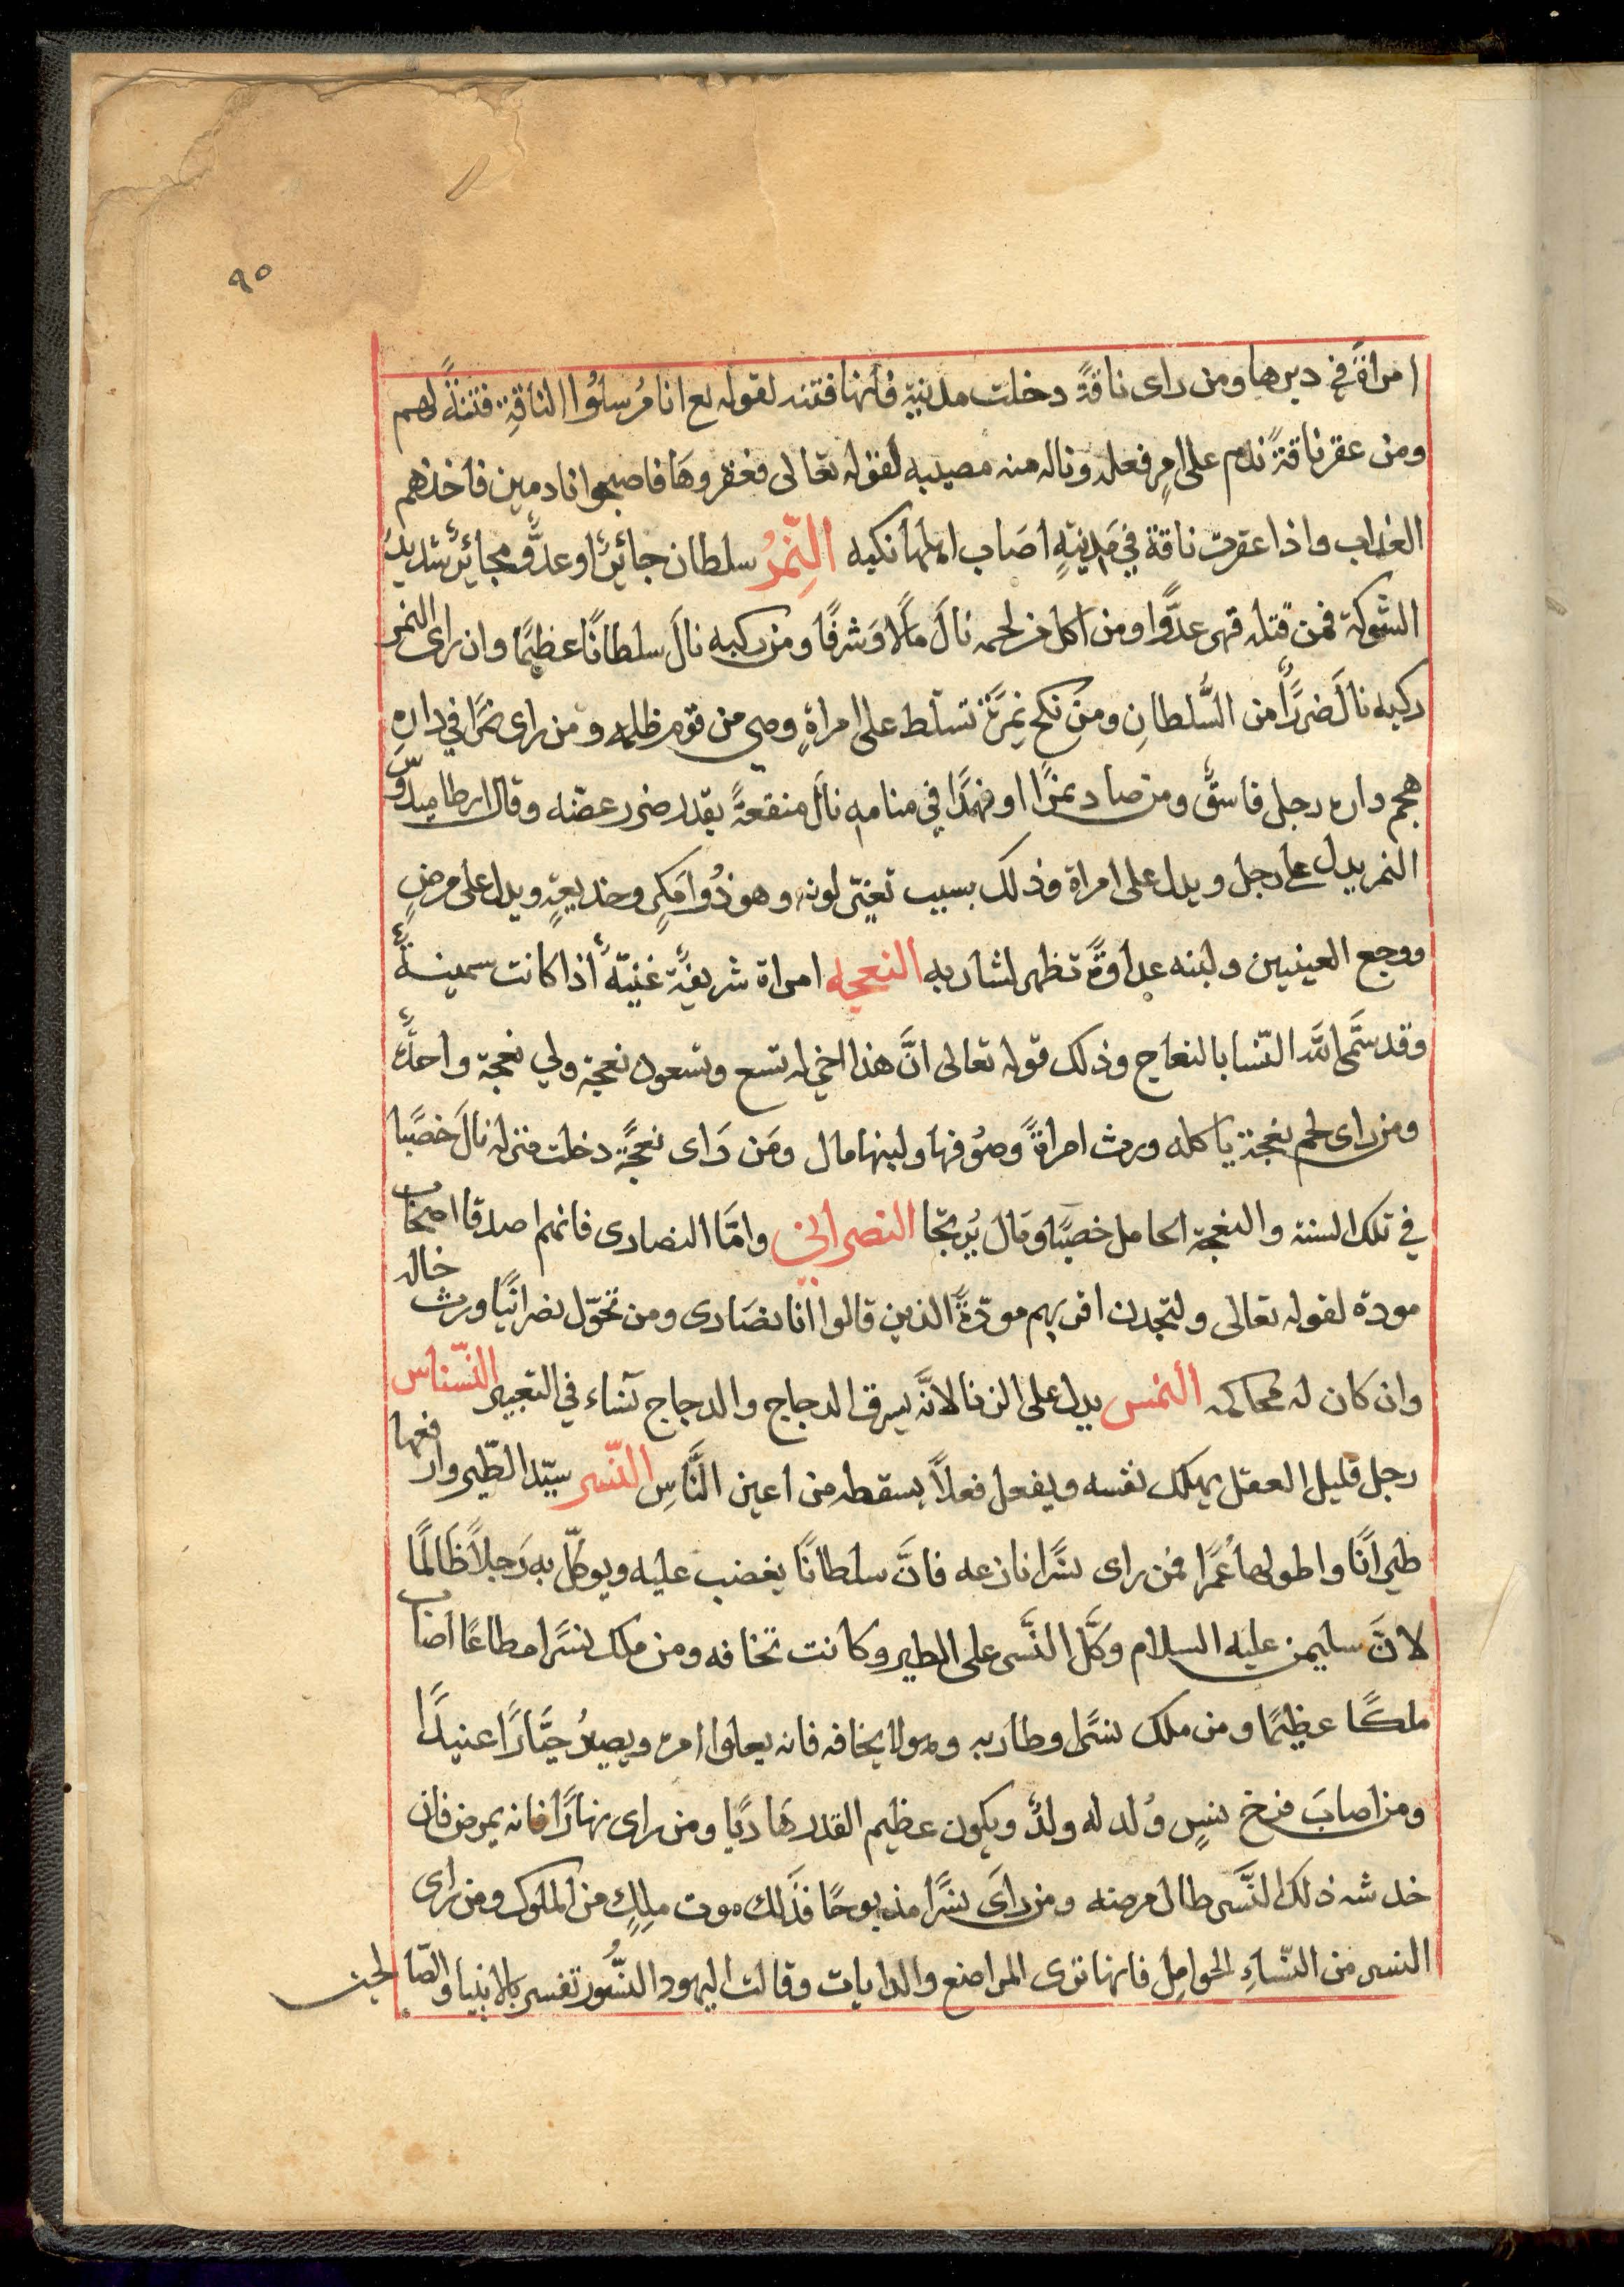 ٩٥
امراةً في دبرها ومن راى ناقةً دخلت مدينة فانها فتنه لقوله تع انا مُرسلُوا الناقةِ فتنةً لهم
ومن عقر ناقةً ندم على امرٍ فعله وناله منه مصيبه لقوله تعالى فعقروهَا فاصبحوا نادمين فاخذهم
العذاب واذا عقرت ناقة في مَدينةٍ اصَاب اهلها نكبه النِّمرُ سلطان جائرٌ او عدوٌّ مجائرٌ شديدُ
الشوكة فمن قتله قهر عدوًّا ومن اكل من لحمه نالَ مالًا وَشرفًا ومن ركبه نالَ سلطانًا عظيمًا وان راى النمر
ركبه نالَ ضررًا من السُّلطانِ ومَن نكح نمِرَةً تسلط على امراةٍ وهي من قومٍ ظلمه ومن راى نمرًا في دارهِ
هجم داره رجل فاسقٌ ومن صاد نمرًا او فهدًا في منامه نالَ منفعةً بقدر ضرر عضّه وقال ارطاميدوّس
النمر يدل على رجل ويدل على امراة وذلك بسبب تغيّر لونه وهو ذُوا مَكرٍ وخديعةٍ ويدل على مرضٍ
ووجع العينيين ولبنه عداوةً تظهر لشاربه النعجه امراة شريفةٌ غنيّةٌ اذا كانت سمينةً
وقد سَمَّى اللّه النّسا بالنعاج وذلك قوله تعالى انَّ هذا اخي له تسع وتسعون نعجة ولي نعجة واحدةٌ
ومن راى لحم نعجة ياكله ورث امراةً وصُوفها ولبنها مال ومَن رَاى نعجةً دخلت منزله نالَ خصبًا
في تلك السنة والنعجة الحامل خصبًا ومال يُرتجا النصراني وامَّا النصارى فانهم اصدقا اصحاب
مودة لقوله تعالى ولتجدن اقربهم مودّةً الذين قالوا انا نصَارى ومن تحوّل نصرانيًا ورث خاله
وان كان له محاكمه النمس يدل على الزنا لانَّه يسرق الدجاج والدجاج نساء في التعبير النّسناس
رجل قليل العقل يهلك نفسه ويفعل فعلاً يسقطه من اعين النَّاسِ النّسر سيّد الطّير وارفعها
طيرانًا واطولها عُمرًا فمن راى نسرًا نازعه فانَّ سلطانًا يغضب عليه ويوكّل به رَجلاً ظَالمًا
لانَّ سليمن عليه السلام وكَّل النَّسر على الطير وكانت تخافه ومن ملك نسرًا مطاعًا اصاب
ملكًا عظيمًا ومن ملك نسرًا وطار به وهو لا يخافه فانه يعلوا امره ويصيرُ جبَّارًا عنيدًا
ومن اصابَ فرخ نسرٍ وُلد له ولدٌ ويكون عظيم القدر هَاديًا ومن راى نهارًا فانه يمرض فان
خدشه ذلك النَّسر طال مرضه ومن رايَ نسرًا مذبوحًا فذلك موت ملكٍ من الملوك ومن راى
النسر من النّساءِ الحوامل فانها ترى المراضع والدايات وقالت اليهود النُّسُور تفسر بالانبيا والصّالحين